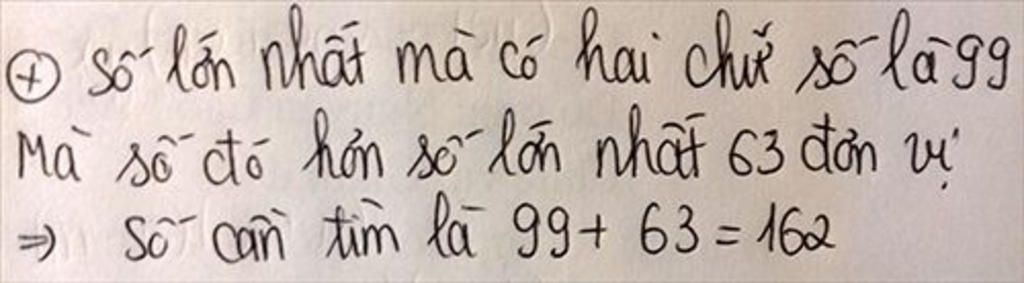 ⊕ Số lớn nhất mà có hai chữ số là 99
Mà số đó hơn số lớn nhất 63 đơn vị
⇒ Số cần tìm là 99 + 63 = 162